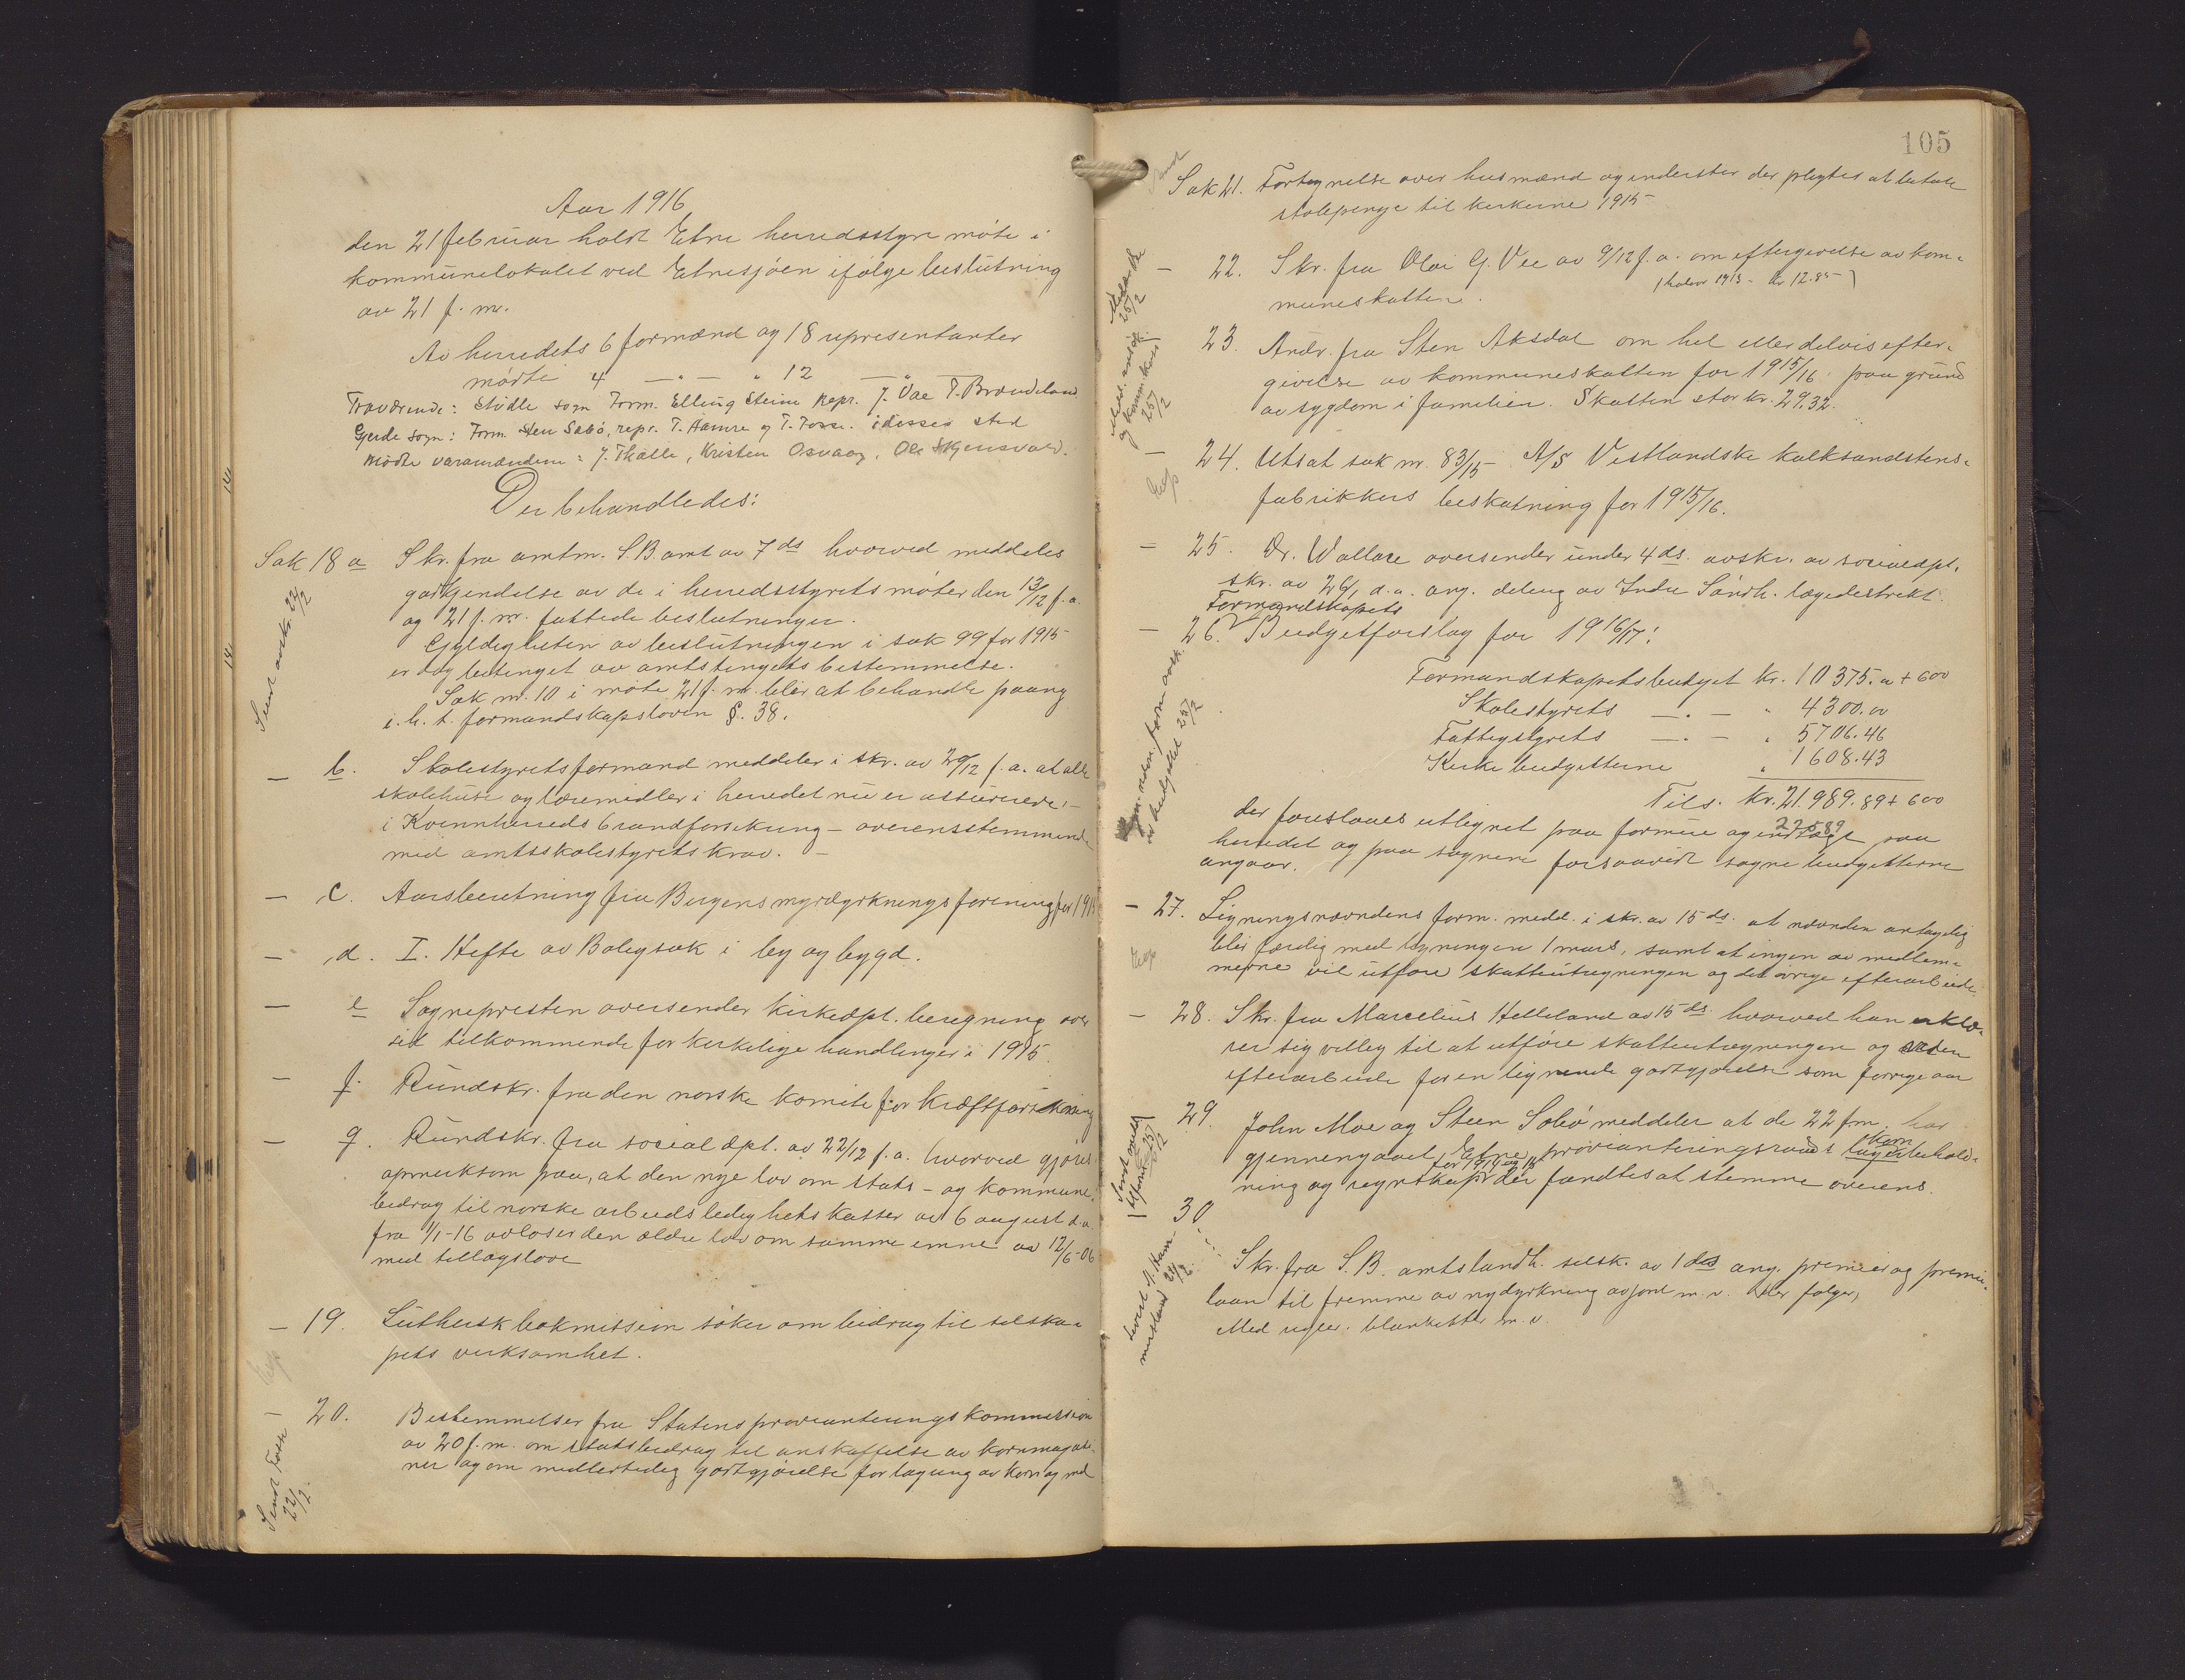 Aar 1916
den 21 februar holdt Etne herredsstyre møte i
kommunelokalet ved Etnesjøen ifølge beslutning
av 21 f. m.
Av herredets 6 formænd og 18 representanter
mødte 4 —"— " 12 —"—
Fraværende: Stødle sogn Form. Elling Steine Repr. J. Vae T. Brændeland
Gjerde sogn: Form. Sten Sæbø, repr. T. Hamre og T. Fosse. i disses sted
mødte varamændene: J. Thalle, Kristen Osvaag, Ole Skjensvold.
Der behandledes:
Sak 18 a Skr. fra amtm. S.B. amt av 7 ds hvorved meddeles
godkjendelse av de i herredsstyrets møter den 13/12 f. a.
og 21 f. m. fattede beslutninger.
Gyldigheten av beslutningen i sak 99 for 1915
er dog betinget av amtstingets bestemmelse.
Sak nr. 10 i møte 21 f. m. blir at behandle paany
i. h. t. formandskapsloven §. 38.
Sendt avskr. 22/2
— b. Skolestyrets formand meddeler i skr. av 29/12 f. a. at alle
skolehuse og læremidler i herredet nu er assurerede
i Kvinnherreds brandforsikring – overensstemmende
med amtsskolestyrets krav. –
— c. Aarsberetning fra Bergens myrdyrkningsforening for 1915
— d. I. Hefte av Boligsak i by og bygd.
— e Sognepresten oversender kirkedpt. beregning over
sit tilkommende for kirkelige handlinger i 1915
— f. Rundskr. fra den norske komite for kræftforskning
— g. Rundskr. fra socialdpt. av 22/12 f. a. hvorved gjøres
opmerksom paa, at den nye lov om stats- og kommune-
bidrag til norske arbeidsledighetskasser av 6 august d. a.
fra 1/1-16 avløser den ældre lov om samme emne av 12/6-06
med tillægslove
— 19. Luthersk bokmission søker om bidrag til selska-
pets virksomhet.
Exp
— 20. Bestemmelser fra Statens provianteringskommission
av 20 f. m. om statsbidrag til anskaffelse av kornmagasi-
ner og om midlertidig godtgjørelse for lagring av korn og mel
Sendt Fosse 22/2.
105
Sak 21. Fortegnelse over husmænd og inderster der pligter at betale
stolepenge til kirkerne 1915
— 22. Skr. fra Olai G. Vee av 9/12 f. a. om eftergivelse av kom-
muneskatten. (halvår 1915 - kr 12.85)
Meddelt 25/2
23. Andr. fra Sten Aksdal om hel eller delvis efter-
givelse av kommuneskatten for 1915/16 paa grund
av sygdom i familien. Skatten stor kr. 29.32.
og kommunekass. 25/2
— 24. Utsat sak nr. 83/15 – A/S Vestlandske kalksandstens-
fabrikkers beskatning for 1915/16.
Exp
— 25. Dr. Wallace oversender under 4 ds. avskr. av socialdpt.
skr. av 26/1 d. a. ang. deling av Indre Søndh. lægedistrikt.
— 26. Formandskapets Budgetforslag for 1916/17:
Formandskapets budget kr. 10375.00 + 600
Skolestyrets —"— " 4300.00
Fattigstyrets —"— " 5706.46
Kirkebudgetterne " 1608.43
Tils. kr. 21.989.89 + 600
22589
der foreslaaes utlignet paa formue og indtægt paa
herredet og paa sognene forsaavidt sognebudgetterne
angaar.
— 27. Ligningsnævndens form. medd. i skr. av 15 ds. at nævnden antagelig
blir færdig med ligningen 1 mars, samt at ingen av medlem-
merne vil utføre skatteutregningen og det øvrige efterarbeide.
Exp
— 28. Skr. fra Marcelius Helleland av 15 ds. hvorved han erklæ-
rer sig villig til at utføre skatteutregningen og
efterarbeide for en lignende godtgjørelse som forrige aar
29. John Moe og Steen Sæbø meddeler at de 22 f. m. har
gjennemgaaet Etne provianteringsraads kornlagerbehold-
ning og regnskap for 1914 og 15 der fandtes at stemme overens.
30 Skr. fra S. B. amts landh. selsk. av 1 ds ang. premier og premie-
laan til fremme av nydyrkning av jord m. v. der følger,
Med regler, blanketter m. v.